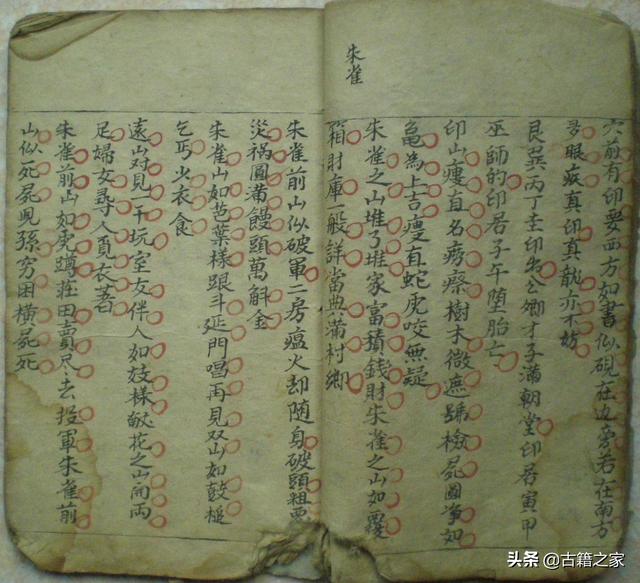 穴前有印要西方如書似硯在边旁若在南方
眼疾真印真龍亦不妨
艮巽丙丁圭印公卿才子滿朝堂印居寅甲
巫師的印居子午堕胎亡
印山瘦自名痨瘵樹木微遮號檢屍圓净如
龜為上吉瘦自蛇虎咬無疑
朱雀之山堆了堆家富積錢財朱雀之山如覆
箱財庫一般詳當典滿村鄉
朱雀
朱雀前山似破軍二房瘟火却随身破頭粗惡
災禍圓滿饅頭萬斛金
朱雀山如芭葉樣跟斗延門唱再見双山如鼓槌
乞丐少衣食
遠山对見一千玩室友伴人如妓樣花之山向両
足婦女尋人覓衣着
朱雀前山如虎蹲莊田賣尽去投軍朱雀前
山似死屍兒孫穷困横屍死
头条 @古籍之家